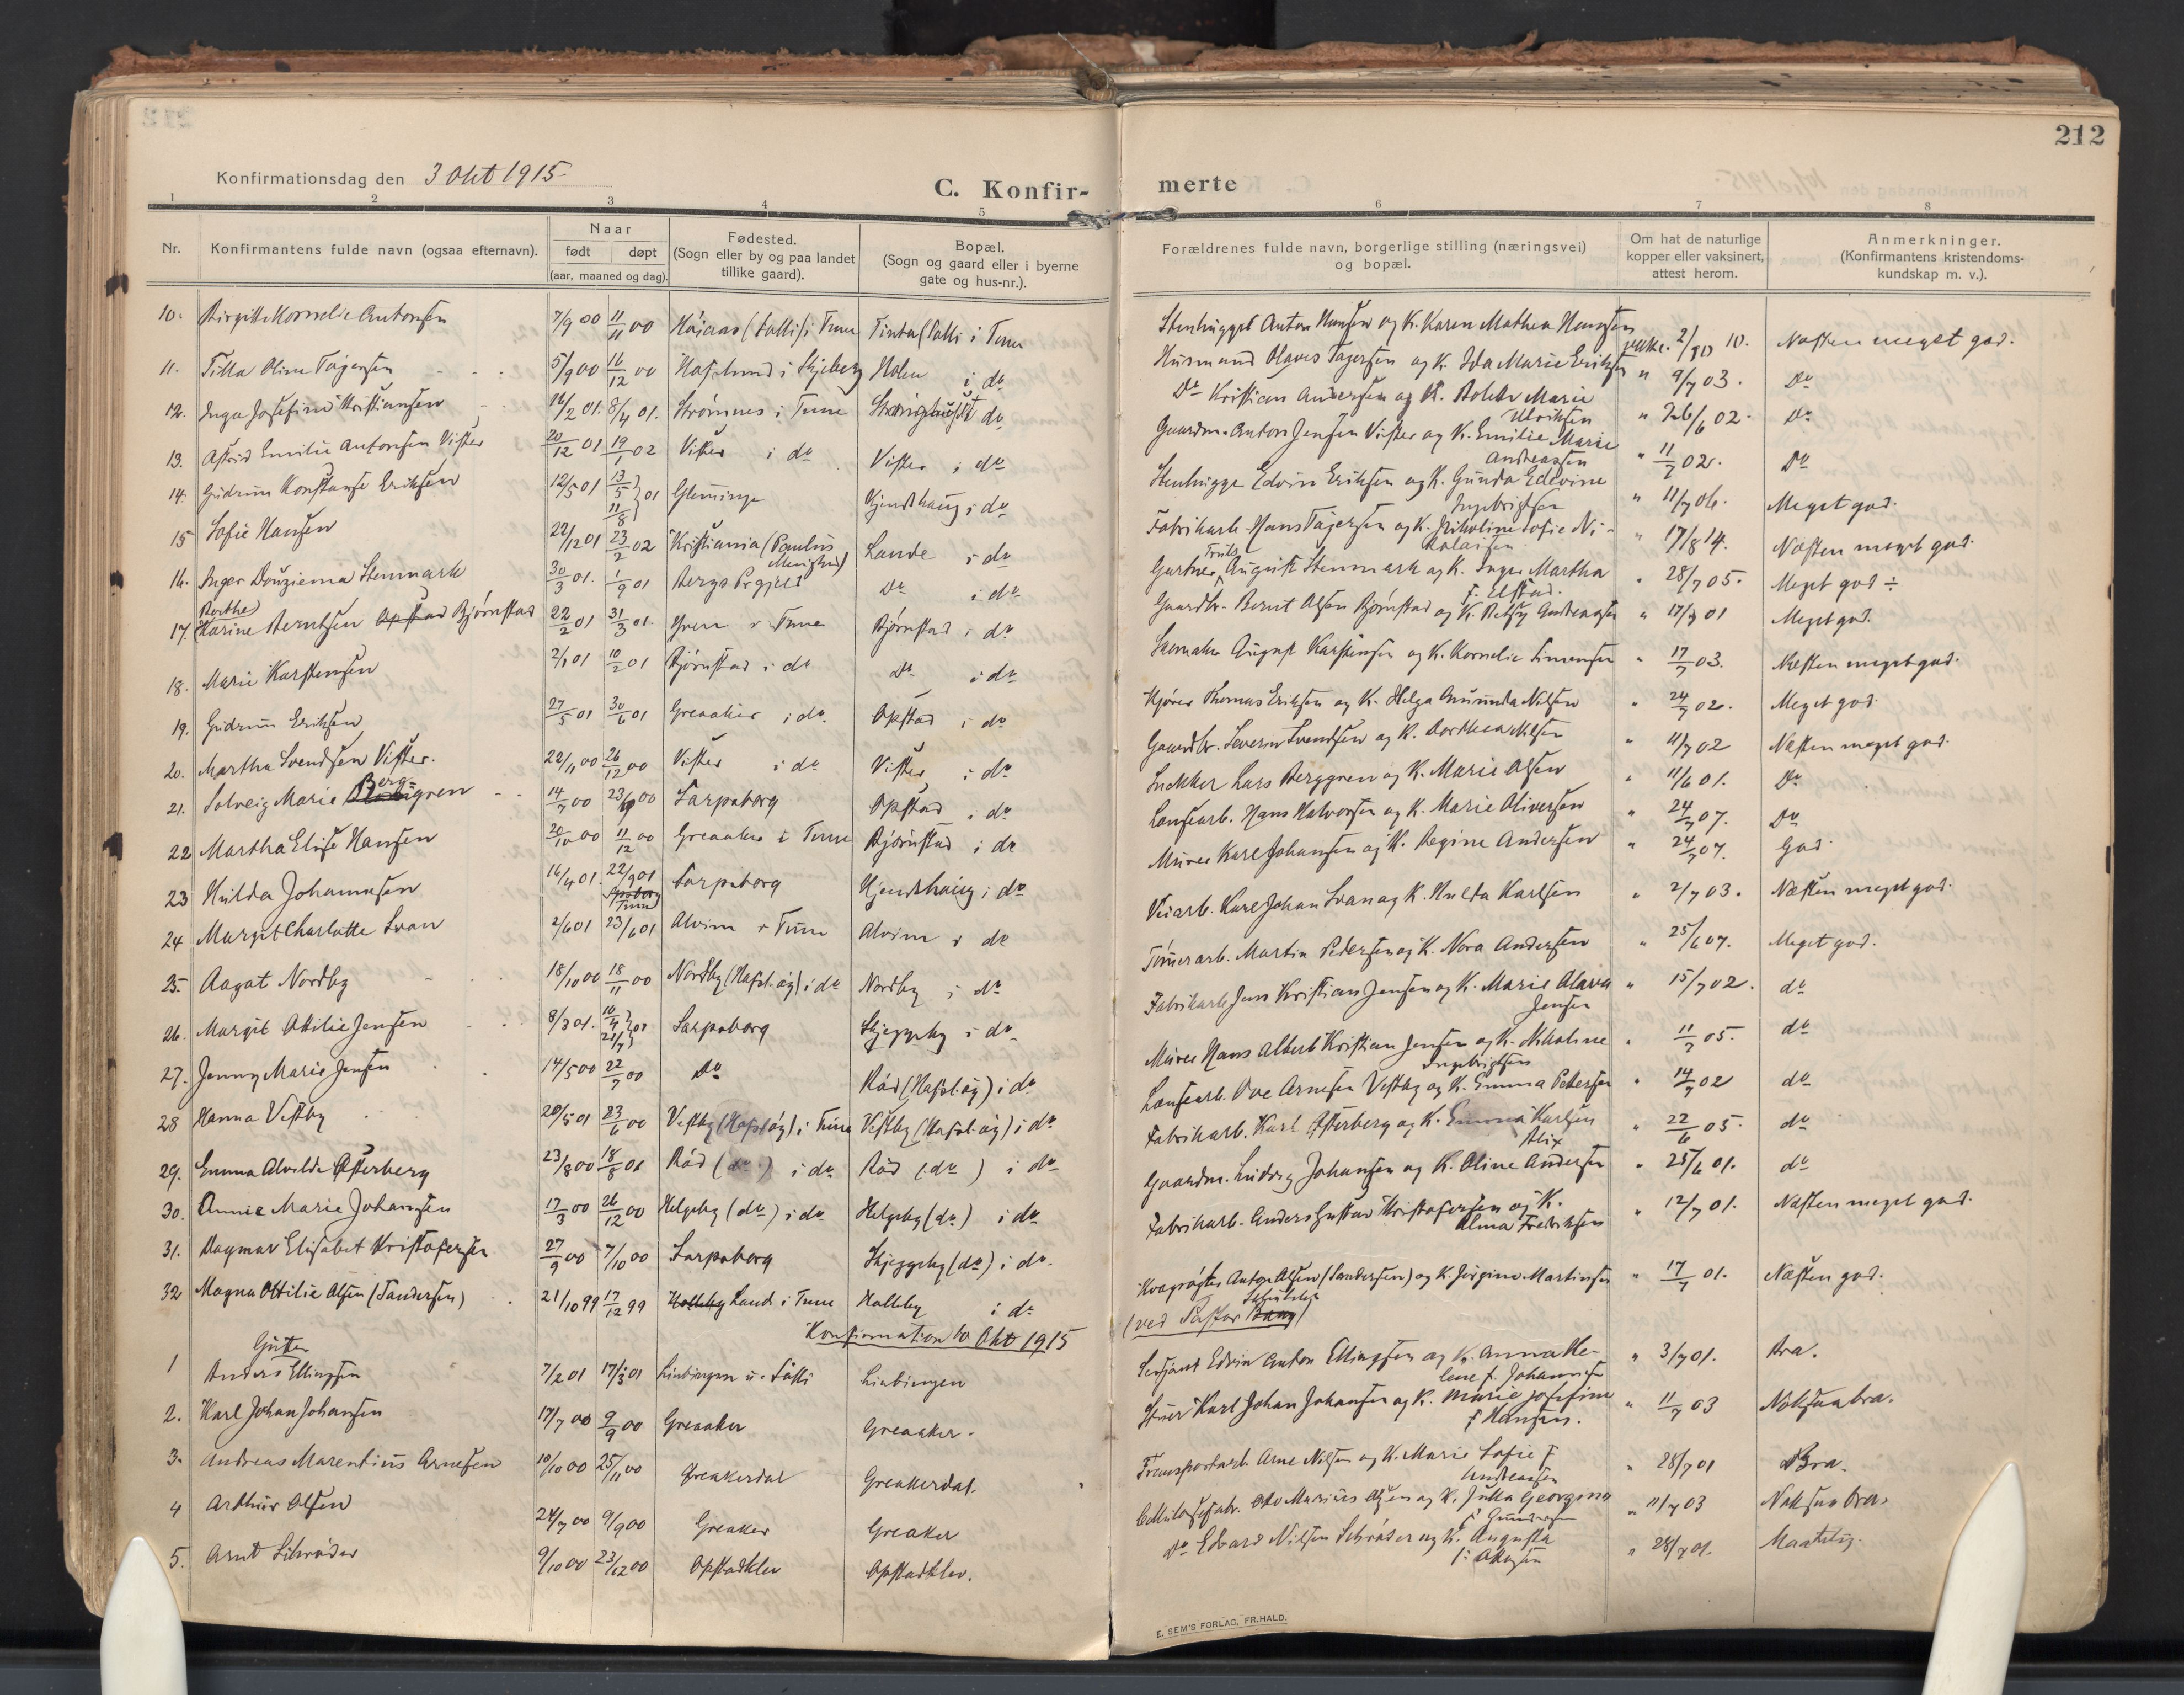 212
Konfirmationsdag den 3 Okt 1915
C. Konfir-
merte
1 2 3 4 5 6 7 8
Nr.
Konfirmantens fulde navn (ogsaa efternavn).
Naar
født døpt
(aar, maaned og dag).
Fødested.
(Sogn eller by og paa landet
tillike gaard).
Bopæl.
(Sogn og gaard eller i byerne
gate og hus-nr.).
Forældrenes fulde navn, borgerlige stilling (næringsvei)
og bopæl.
Om hat de naturlige
kopper eller vaksinert,
attest herom.
Anmerkninger.
(Konfirmantens kristendoms-
kundskap m. v.).
10. Birgitte Kornelie Antonsen 7/9 00 11/11 00 i Tune i Tune Stenhugger Anton Hansen og K. Karen Mathea Hansen Næsten meget god.
11. Tilla Oline Tagersen 5/9 00 16/12 00 Hafslund i Skjeberg Holen i do Husmand Olaves Tagersen og K. Ida Marie Eriksen " 9/7 03. Do
12. Inga Josefine Kristiansen 16/2 01. 8/4 01. Strømnes i Tune do Do Kristian Andersen og K. Bolette Marie Ulriksen " 26/6 02. Do
13. Astrid Emilie Antonsen Vister 20/12 01 19/1 02 Vister i do Vister i do Gaardm. Anton Jensen Vister og K. Emilie Marie Andreassen " 11/7 02. Do
14. Gudrun Konstanse Eriksen 12/5 01 13/5 11/8 01 Glemminge i do Stenhugger Edvin Eriksen og K. Gunda Edevine Ingebrigtsen " 11/7 06. Meget god.
15 Sofie Hansen 22/12 01 23/2 02 Kristiania (Paulus Menighed) Lande i do Fabrikarb. Hans Tagersen og K. Nikoline Sofie Ni-kolaisen " 17/8 14. Næsten meget god.
16. Inger Stenmark 30/3 01. 1/9 01 Bergs Prgjeld Do i do Gartner Truls August Stenmark og K. Inger Martha f. Elstad. " 28/7 05. Meget god ÷
17. Berthe Karine Berntsen Bjørnstad 22/2 01 31/3 01. i Tune Bjørnstad i do Gaardbr. Bernt Olsen Bjørnstad og K. Betsy Andreassen " 17/7 01 Meget god.
18. Marie Karstensen 2/1 01 10/2 01 Bjørnstad i do Do i do Skomaker August Karstensen og K. Kornelie Simensen " 17/7 03. Næsten meget god.
19. Gudrun Eriksen 27/5 01 30/6 01 Greaaker i do Opstad i do Kjører Thomas Eriksen og K. Helga Amunda Nilsen " 24/7 02. Meget god.
20. Martha Svendsen Vister. 22/11 00 26/12 00 Vister i do Vister i do Gaardbr. Severin Svendsen og K. Dorthea Nilsen " 11/7 02 Næsten meget god.
21. Solveig Marie Berggren 14/7 00 23/9 00 Sarpsborg Opstad i do Snekker Lars Berggren og K. Marie Olsen " 11/6 01. Do
22 Martha Elise Hansen 20/10 00 11/12 00 Greaaker i Tune Bjørnstad i do Lansearb. Hans Halvorsen og K. Marie Oliversen " 24/7 07. Do
23 Hulda Johannesen 16/4 01. 22/9 01 Sarpsborg i do Murer Karl Johansen og K. Regine Andersen " 24/7 07. God.
24 Margit Charlotte Svan 2/6 01 23/6 01 Alvim i Tune Alvim i do Veiarb. Karl Johan Svan og K. Hulda Karlsen " 2/7 03. Næsten meget god.
25. Aagot Nordby 18/10 00 18/11 00 Nordby (Hafsl. øg) i do Nordby i do Tømerarb. Martin Pedersen og K. Nora Andersen " 25/6 07. Meget god.
26. Margit Otilie Jensen 8/3 01. 10/4 21/7 01 Sarpsborg Skjeggeby i do Fabrikarb. Jens Kristian Jensen og K. Marie Olava Jensen " 15/7 02. do
27. Jenny Marie Jensen 14/5 00 22/7 00 Do Rød (Hafsl. øg) i do Murer Hans Albert Kristian Jensen og K. Nikoline Ingebrigtsen " 11/7 05. do
28 Hanna Vestby 20/5 01 23/6 00 Vestby (Hafsl øg) i Tune Vestby (Hafsl. øg) i do Lansearb. Ove Arnesen Vestby og K. Emma Pettersen " 14/7 02 do
29. Emma Alvilde Østerberg 23/8 00 18/8 01 Rød (do) i do Rød (do) i do Fabrikarb. Karl Østerberg og K. Emma Karlsen Alix " 22/6 05. do
30. Annie Marie Johansen 17/3 00 26/12 00 Helgeby (do) i do Helgeby (do) i do Gaardm. Ludvig Johansen og K. Oline Andersen " 25/6 01. do
31. Dagmar Elisabet Kristofersen 27/9 00 7/10 00 Sarpsborg Skjeggeby (do) i do. Fabrikarb. Anders Gustav Kristofersen og K. Alma Fredriksen " 12/7 01. Næsten meget god.
32 Magna Ottilie Olsen (Sandersen) 21/10 99 17/12 99 Lande i Tune Halleby i do Anton Olsen (Sandersen) og K. Jørgine Martinsen " 17/7 01. Næsten god.
Konfirmation 10 Okt 1915 (ved Pastor
Gutter
1 Anders Ellingsen 7/2 01 17/3 01 Lindingen Lindingen Sersjant Edvin Anton Ellingsen og K. Anna He-lene f. Johannesen " 3/7 01. Bra.
2. Karl Johan Johansen 17/7 00 9/9 00 Greaaker Greaaker. Karl Johan Johansen og K. Marie Josefine f Hansen. " 11/7 03 Noksaa bra.
3. Andreas Marentius Arnesen 10/10 00 25/11 00 Greakerdal Greakerdal. Transportarb. Arne Nilsen og K. Marie Sofie f Andreassen " 28/7 01 Bra.
4 Arthur Olsen 24/7 00 9/9 00 Greaker Greaker Cellulosefabr. Marius Olsen og K. Julla Georgine f Gundersen " 11/7 03 Noksaa bra.
5. Arnt Schrøder 9/10 00 23/12 00 Opstadklev Opstadklev. Do Edvard Nilsen Schrøder og K. Augusta f: " 28/7 01. Maatelig.
E. SEM'S FORLAG, FR.HALD.